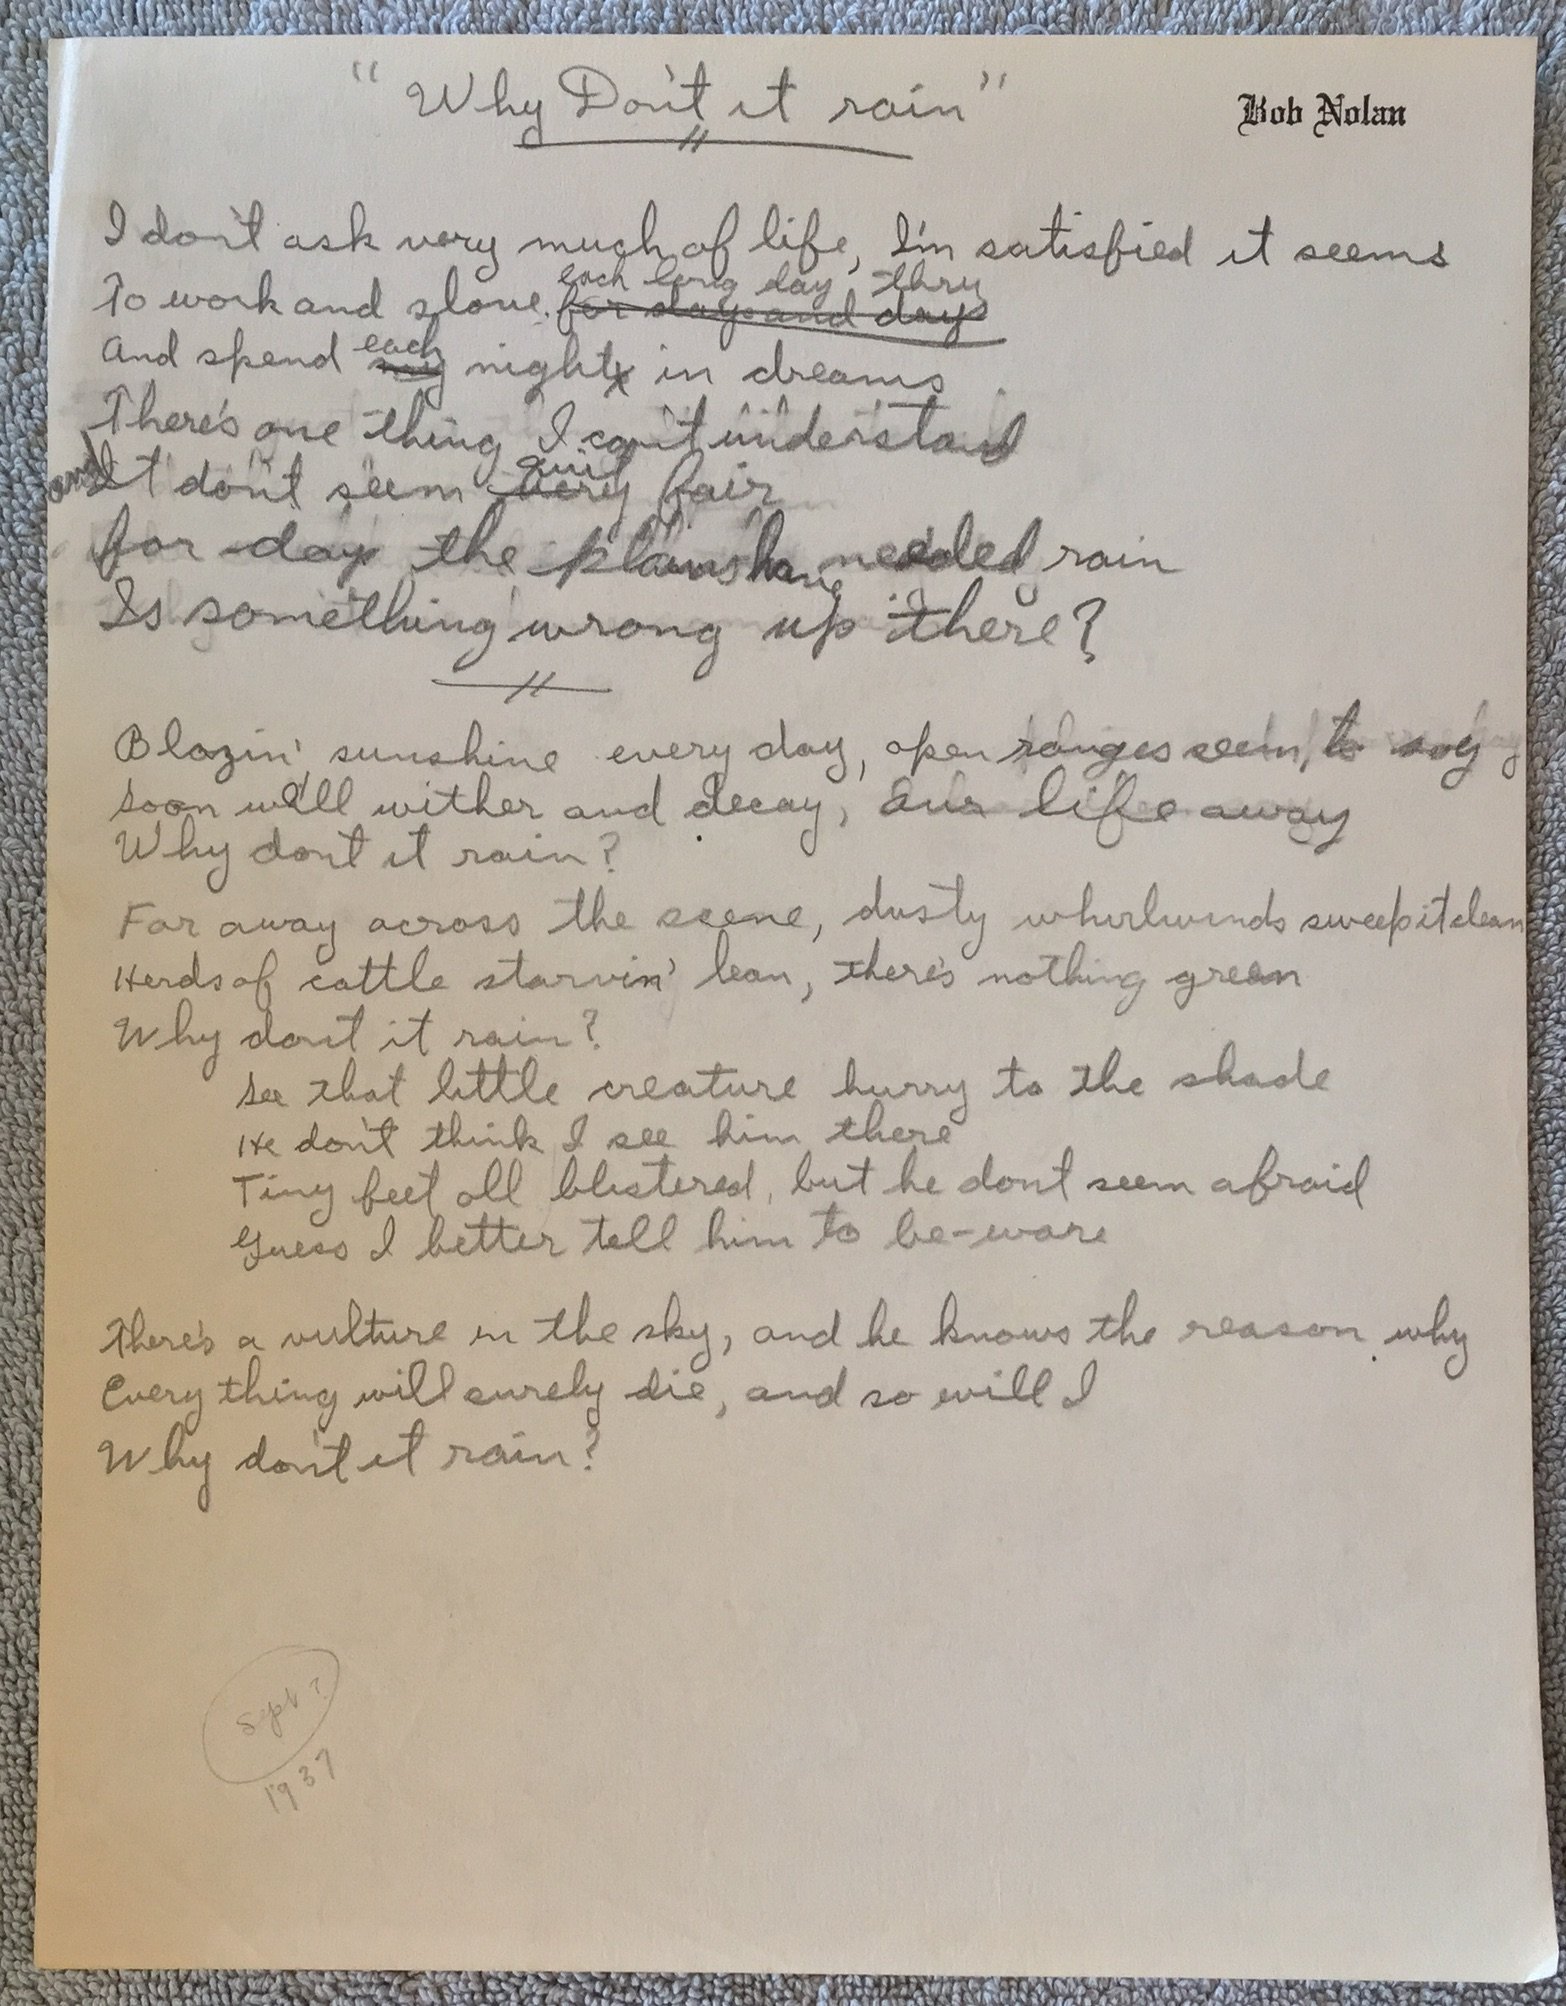 "Why Don't it rain"
Bob Nolan
I don't ask very much of life, I'm satisfied it seems
each long day thru
To work and slave for days and days
And spend each nights in dreams
There's one thing I can't understand
and It don't seem quit very fair
for days the plains have needed rain
Is something wrong up there?
Blazin' sunshine every day, open ranges seem to say
Soon we'll wither and decay, our life away
Why dont it rain?
Far away across the scene, dusty whirlwinds sweep it clean
Herds of cattle starvin' lean, there's nothing green
Why dont it rain?
See that little creature hurry to the shade
He don't think I see him there
Tiny feet all blistered, but he dont seem afraid
Guess I better tell him to be-ware
There's a vulture in the sky, and he knows the reason why
Every thing will surely die, and so will I
Why don't it rain?
Sept ?
1937